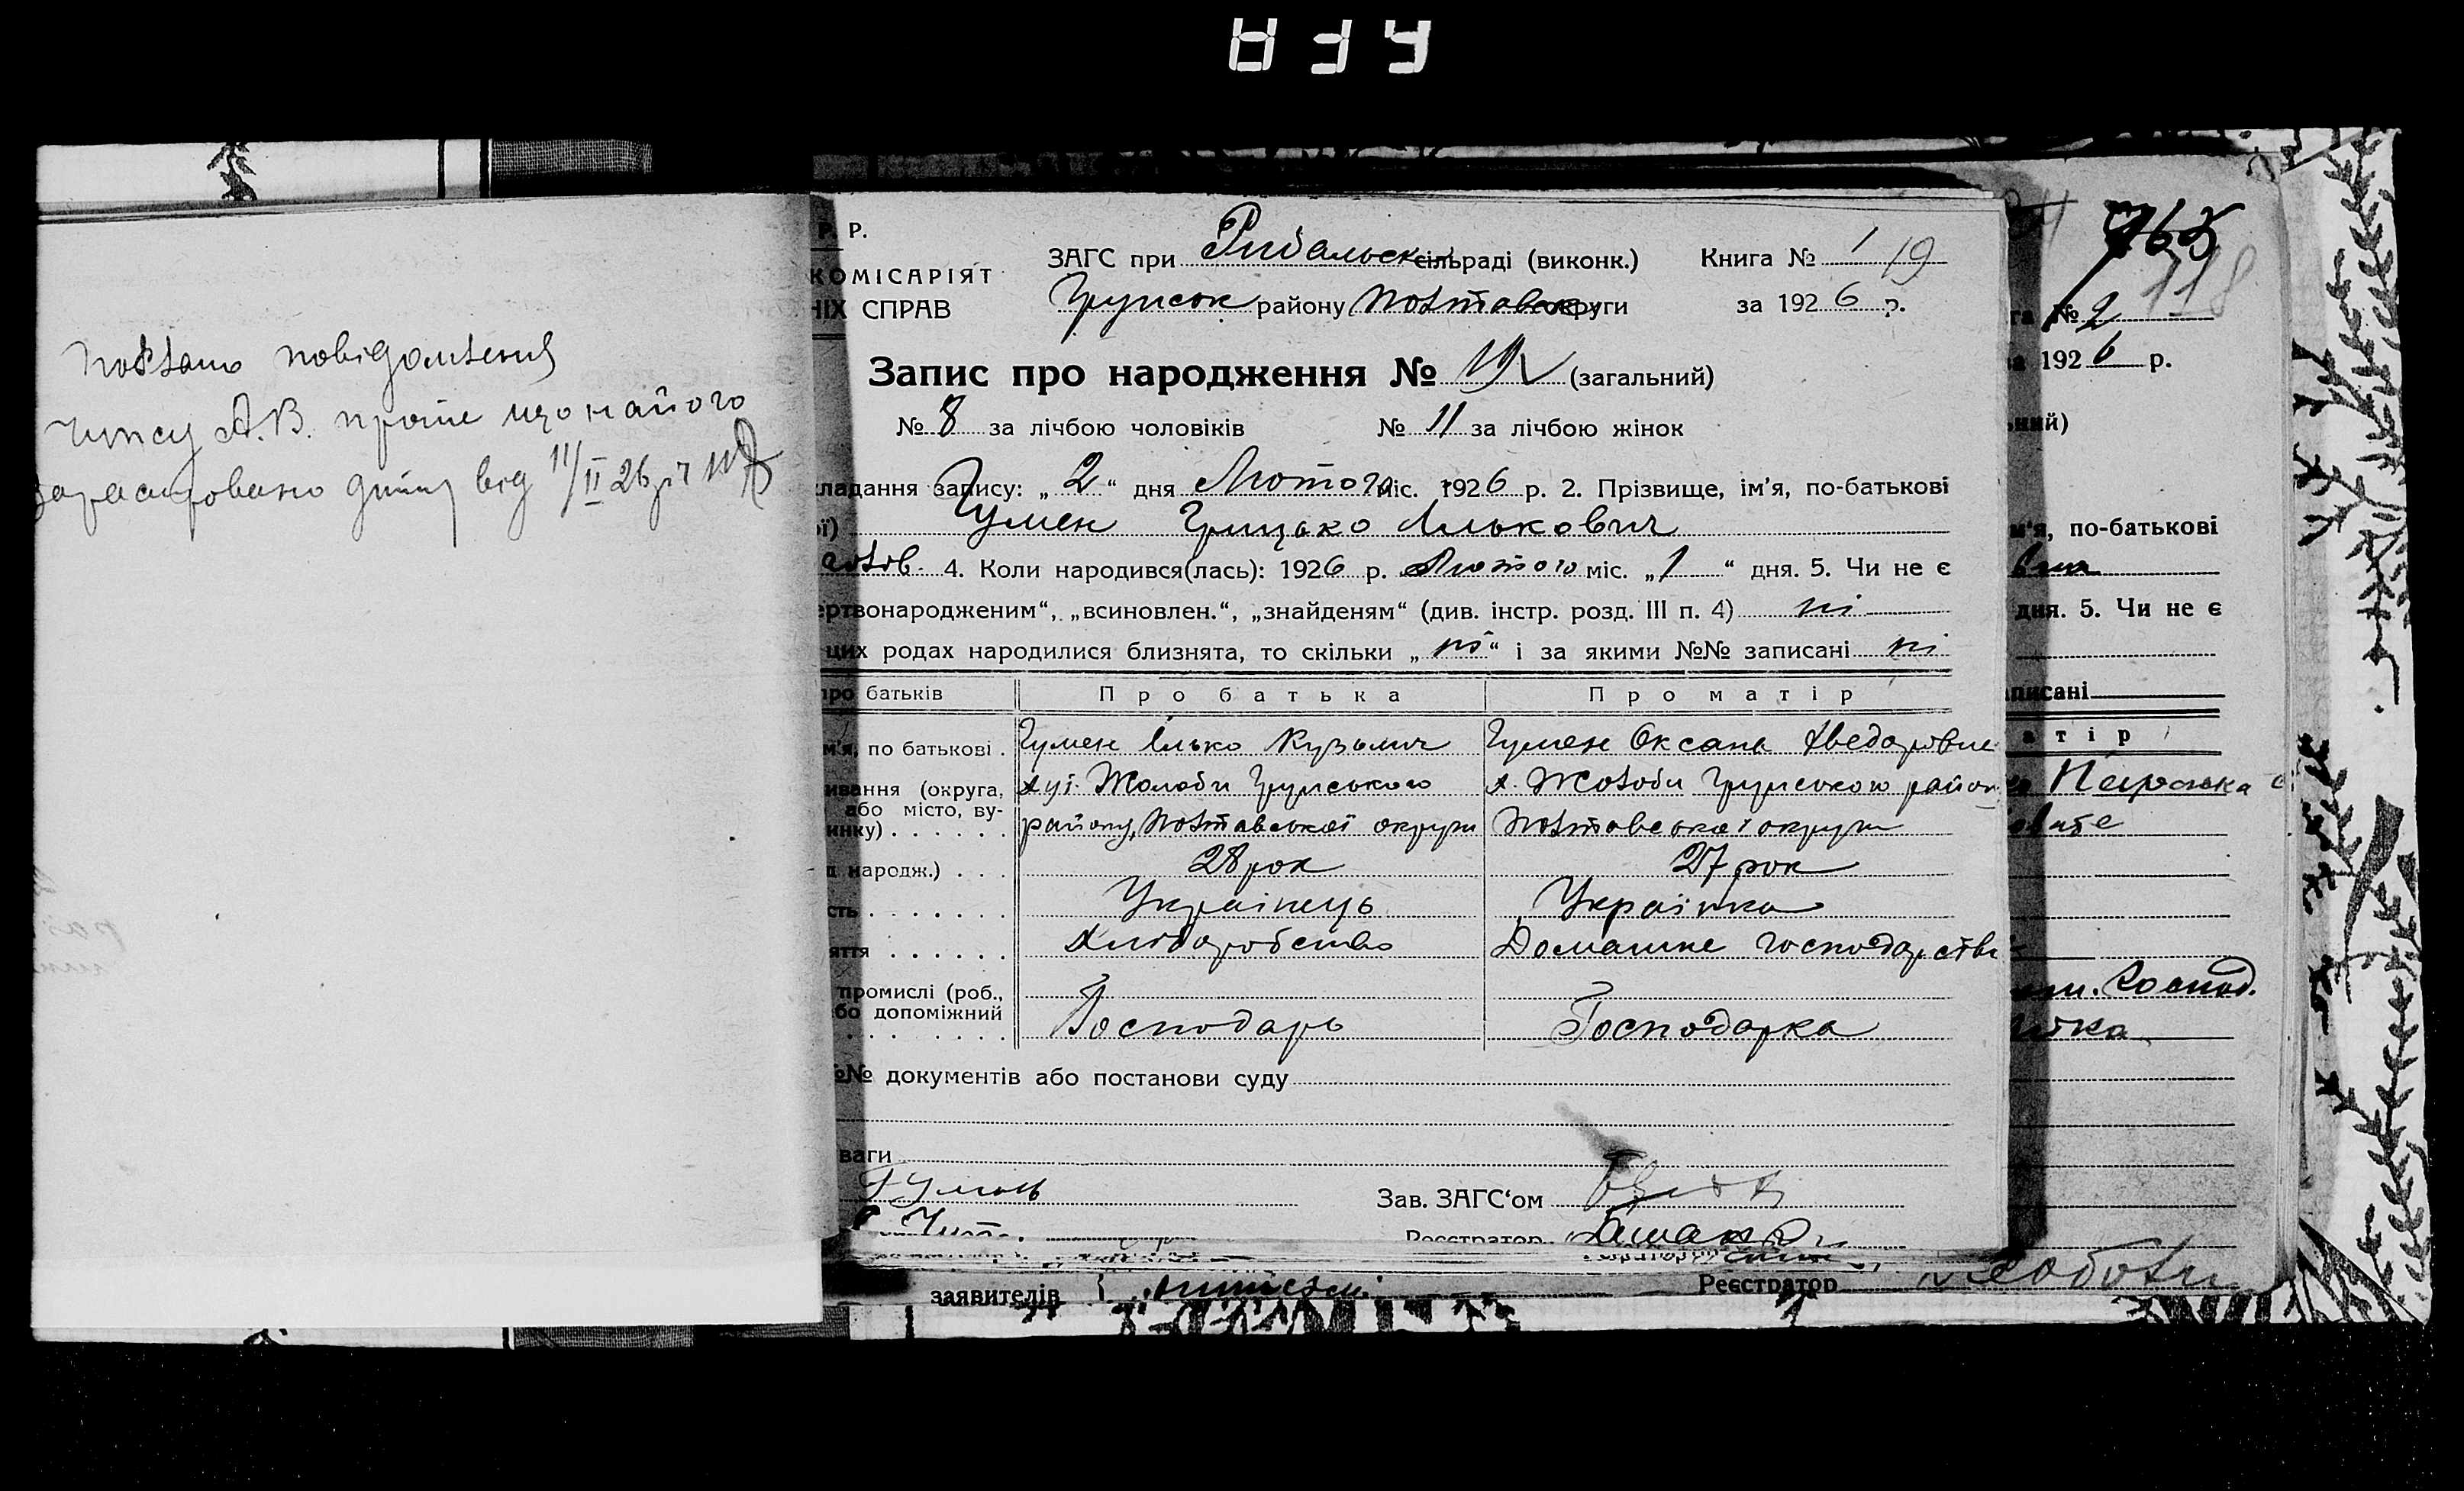 Послано повідомлення
Чипсу А.В. проте що на його
зареєстровано дитину від 11/II 26 р.
Р. Р.
КОМІСАРІЯТ
НІХ СПРАВ
ЗАГС при Рибальськ сільраді (виконк.) Книга № 1 19
Грунськ району Полтавськ округи за 1926 р.
Запис про народження № 19 (загальний)
№ 8 за лічбою чоловіків № 11 за лічбою жінок
кладання запису: „2“ дня Лютого міс. 1926 р. 2. Прізвище, ім’я, по-батькові
ої) Гумен Грицько Ількович
чолов. 4. Коли народився(лась): 1926 р. Лютого міс. „1“ дня. 5. Чи не є
ертвонародженим“, „всиновлен.“, „знайденям“ (див. інстр. розд. III п. 4) ні
цих родах народилися близнята, то скільки „ні“ і за якими №№ записані ні
про батьків Про батька Про матір
м’я, по батькові . Гумен Ілько Кузьмич Гумен Оксана Хведоровне
ивання (округа, хут. Жолоби Грунського х. Жолоби Грунського район
або місто, ву-
инку) . . . . . . району, Полтавської округи Полтавської округи
д народж.) . . . 28 рок 27 рок
сть . . . . . . . Українець Українка
яття . . . . . . Хліборобство Домашнє господарств
промислі (роб.,
бо допоміжний Господарь Господарка
№№ документів або постанови суду
ваги
Гумень Зав. ЗАГС‘ом
Реєстратор
заявителів Реєстратор
765
118
га № 2
за 1926 р.
ьний)
м’я, по-батькові
дня. 5. Чи не є
аписані
а т і р
Господ.